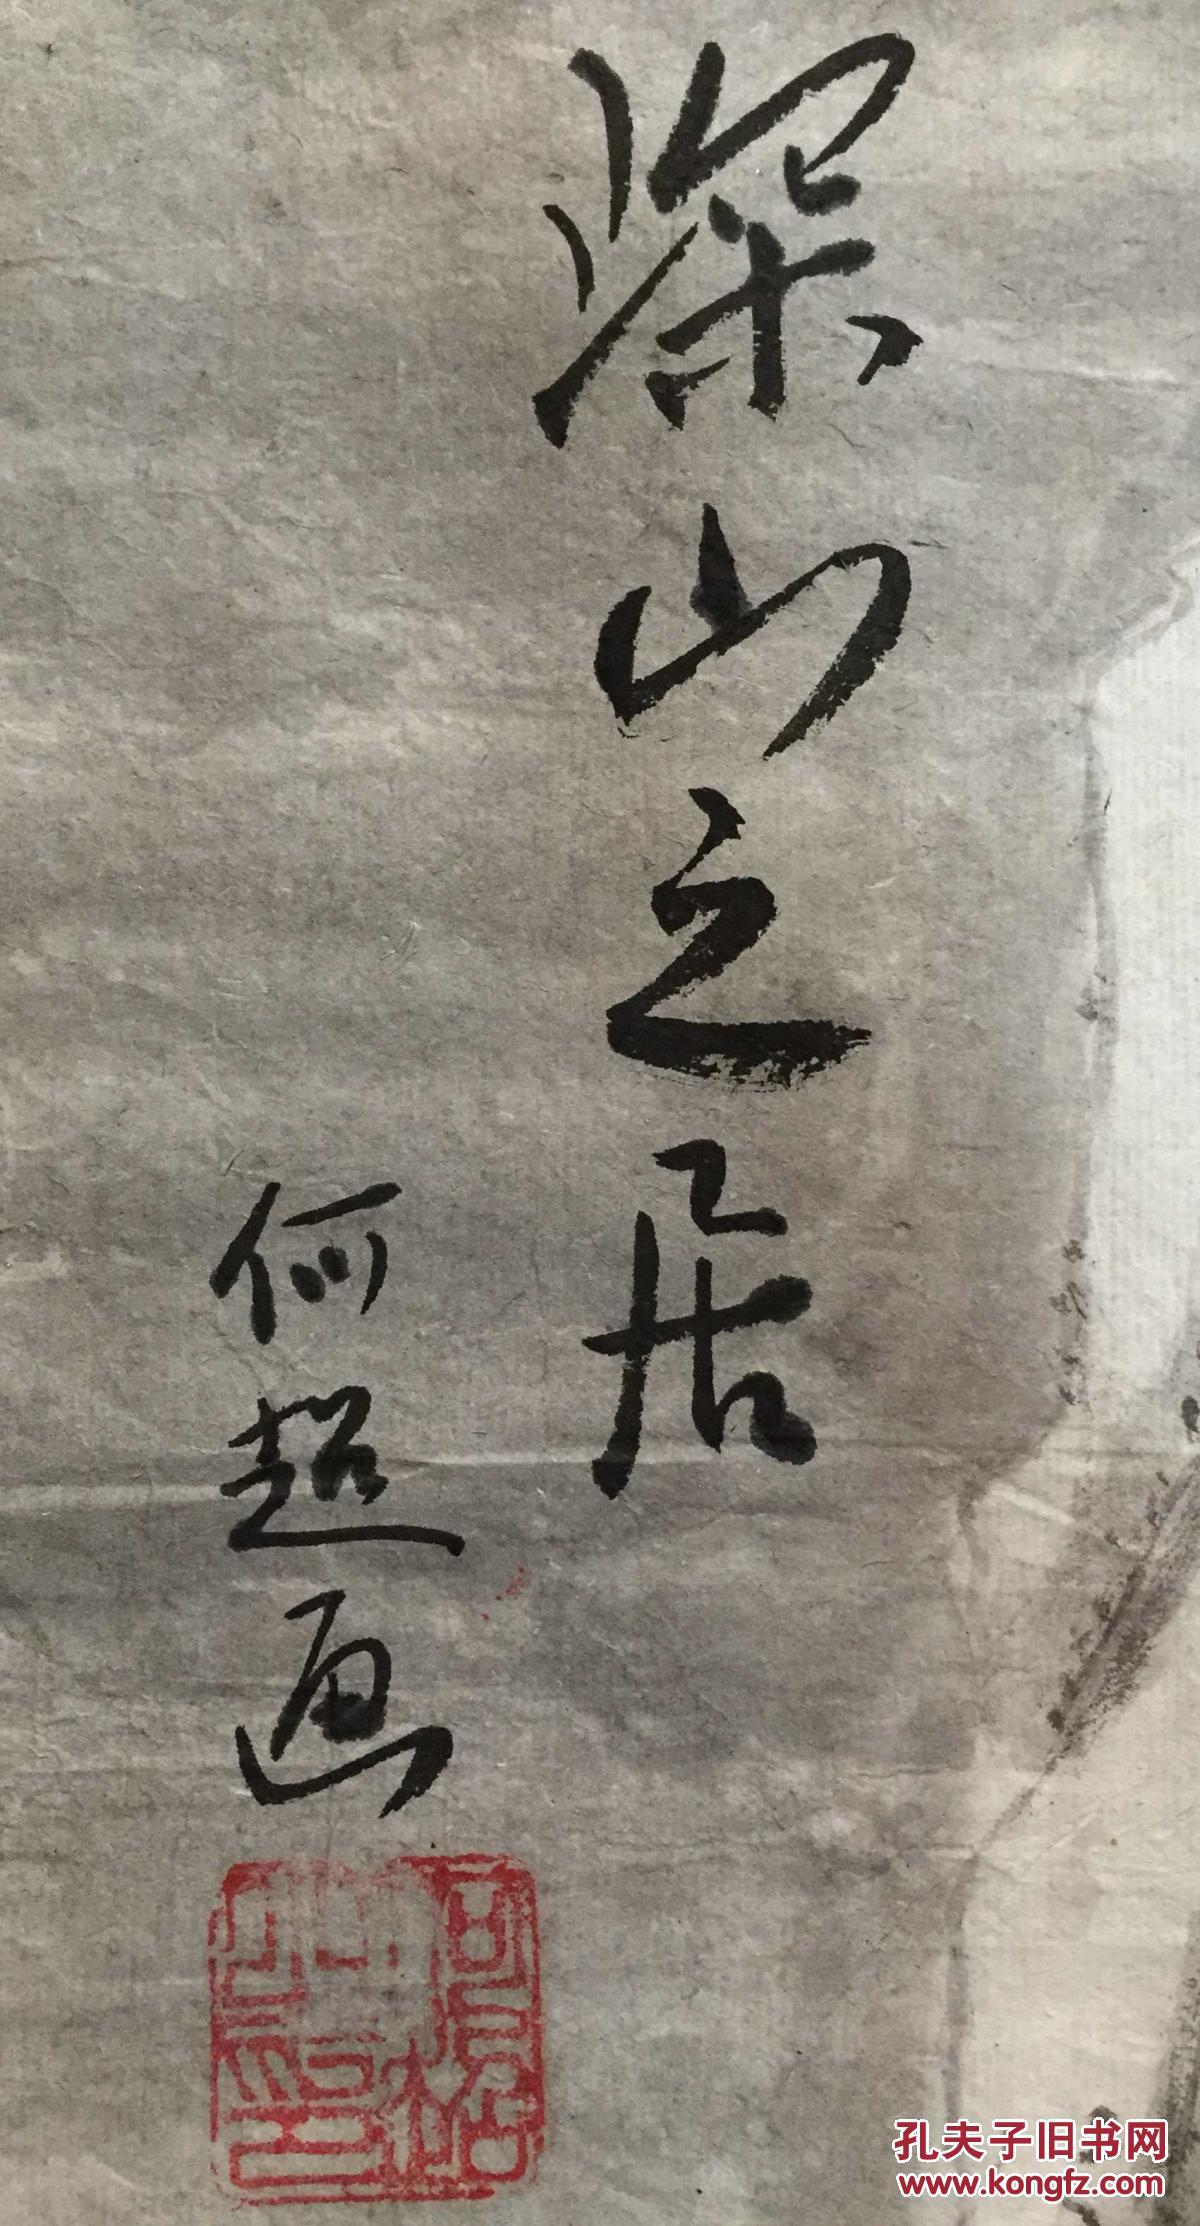 深山之居
何超画
孔夫子旧书网
www.kongfz.com